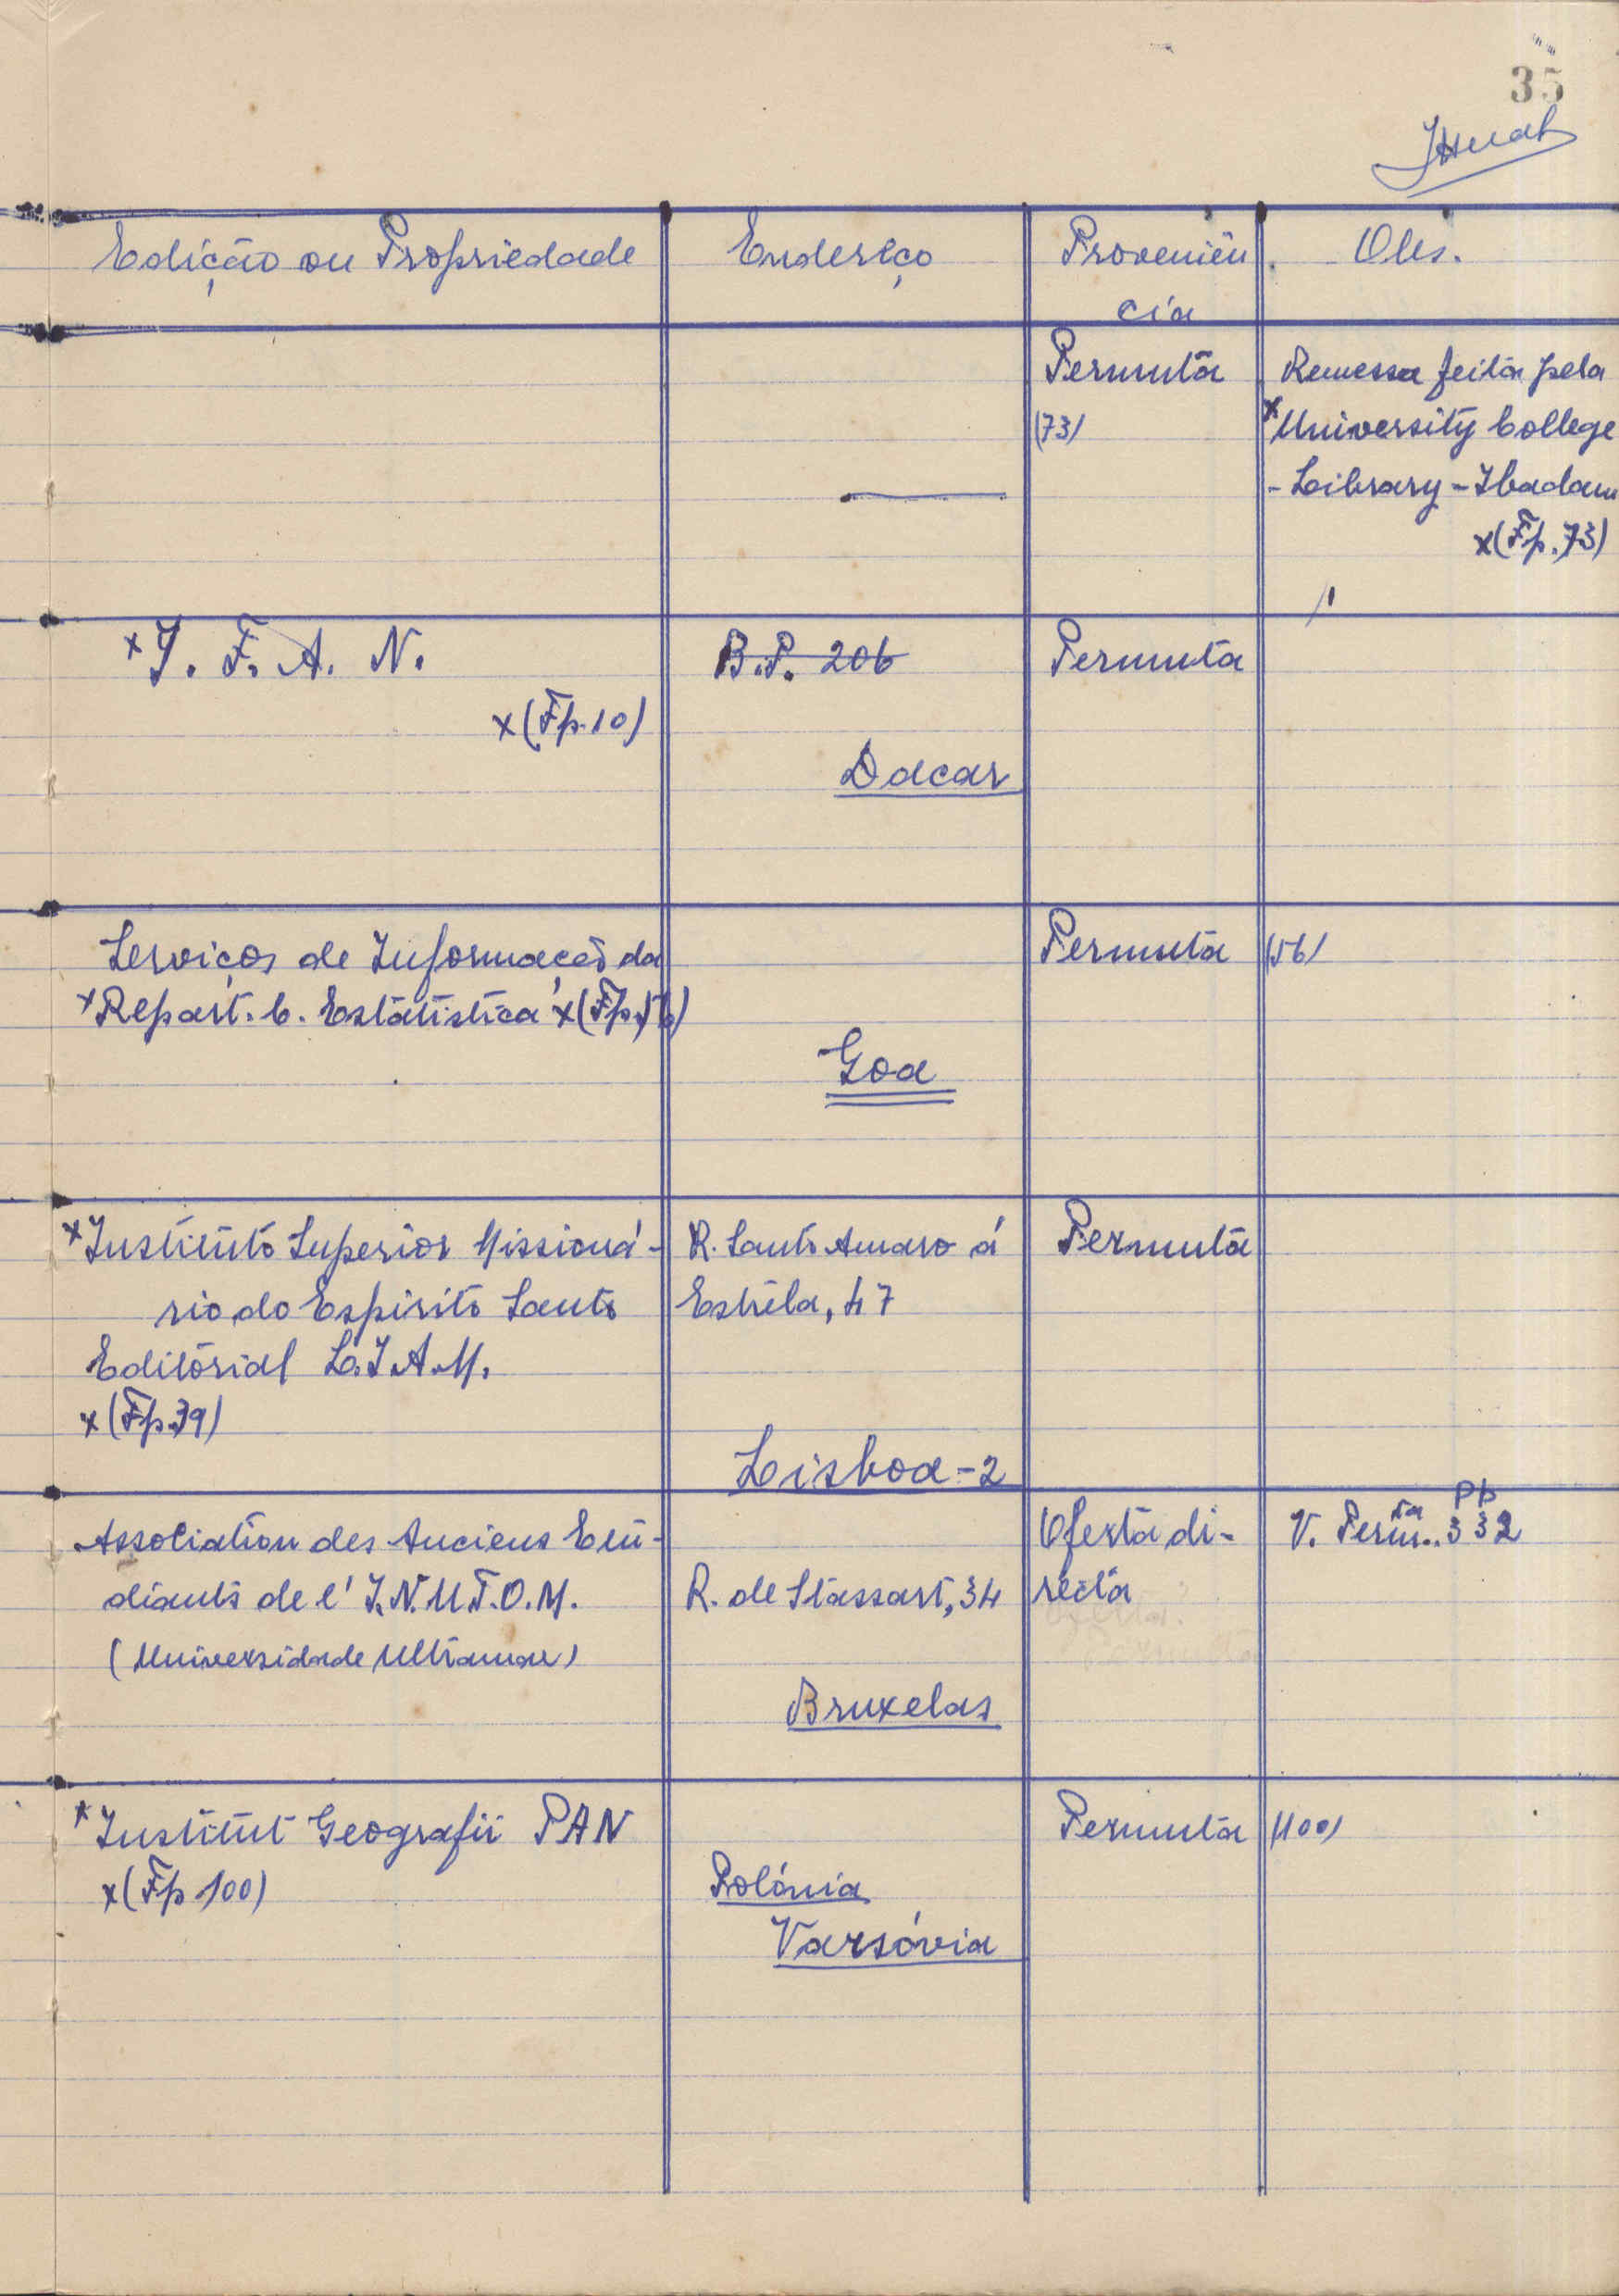 35
Edição ou Propriedade
Endereço
Proveniên
cia
Obs.
Permuta
(73)
Remessa feita pela
x University College
- Library - Ibadam
x (Fp. 73)
x I. F. A. N.
x (Fp. 10)
B.P. 206
Dacar
Permuta
Serviços de Informação da
x Repart. C. Estatística x (Fp. 56)
Goa
Permuta
(56)
x Instituto Superior Missioná-
rio do Espirito Santo
Editorial L.I.A.M.
x (Fp. 39)
R. Santo Amaro á
Estrêla, 47
Lisboa - 2
Permuta
Association des Anciens Etu-
diants de l' I.N.U.T.O.M.
(Universidade Ultramar)
R. de Stassart, 34
Bruxelas
Oferta di-
recta
V. Perm.ta Pp 332
x Institut Geografii PAN
x (Fp 100)
Polónia
Varsóvia
Permuta
(100)